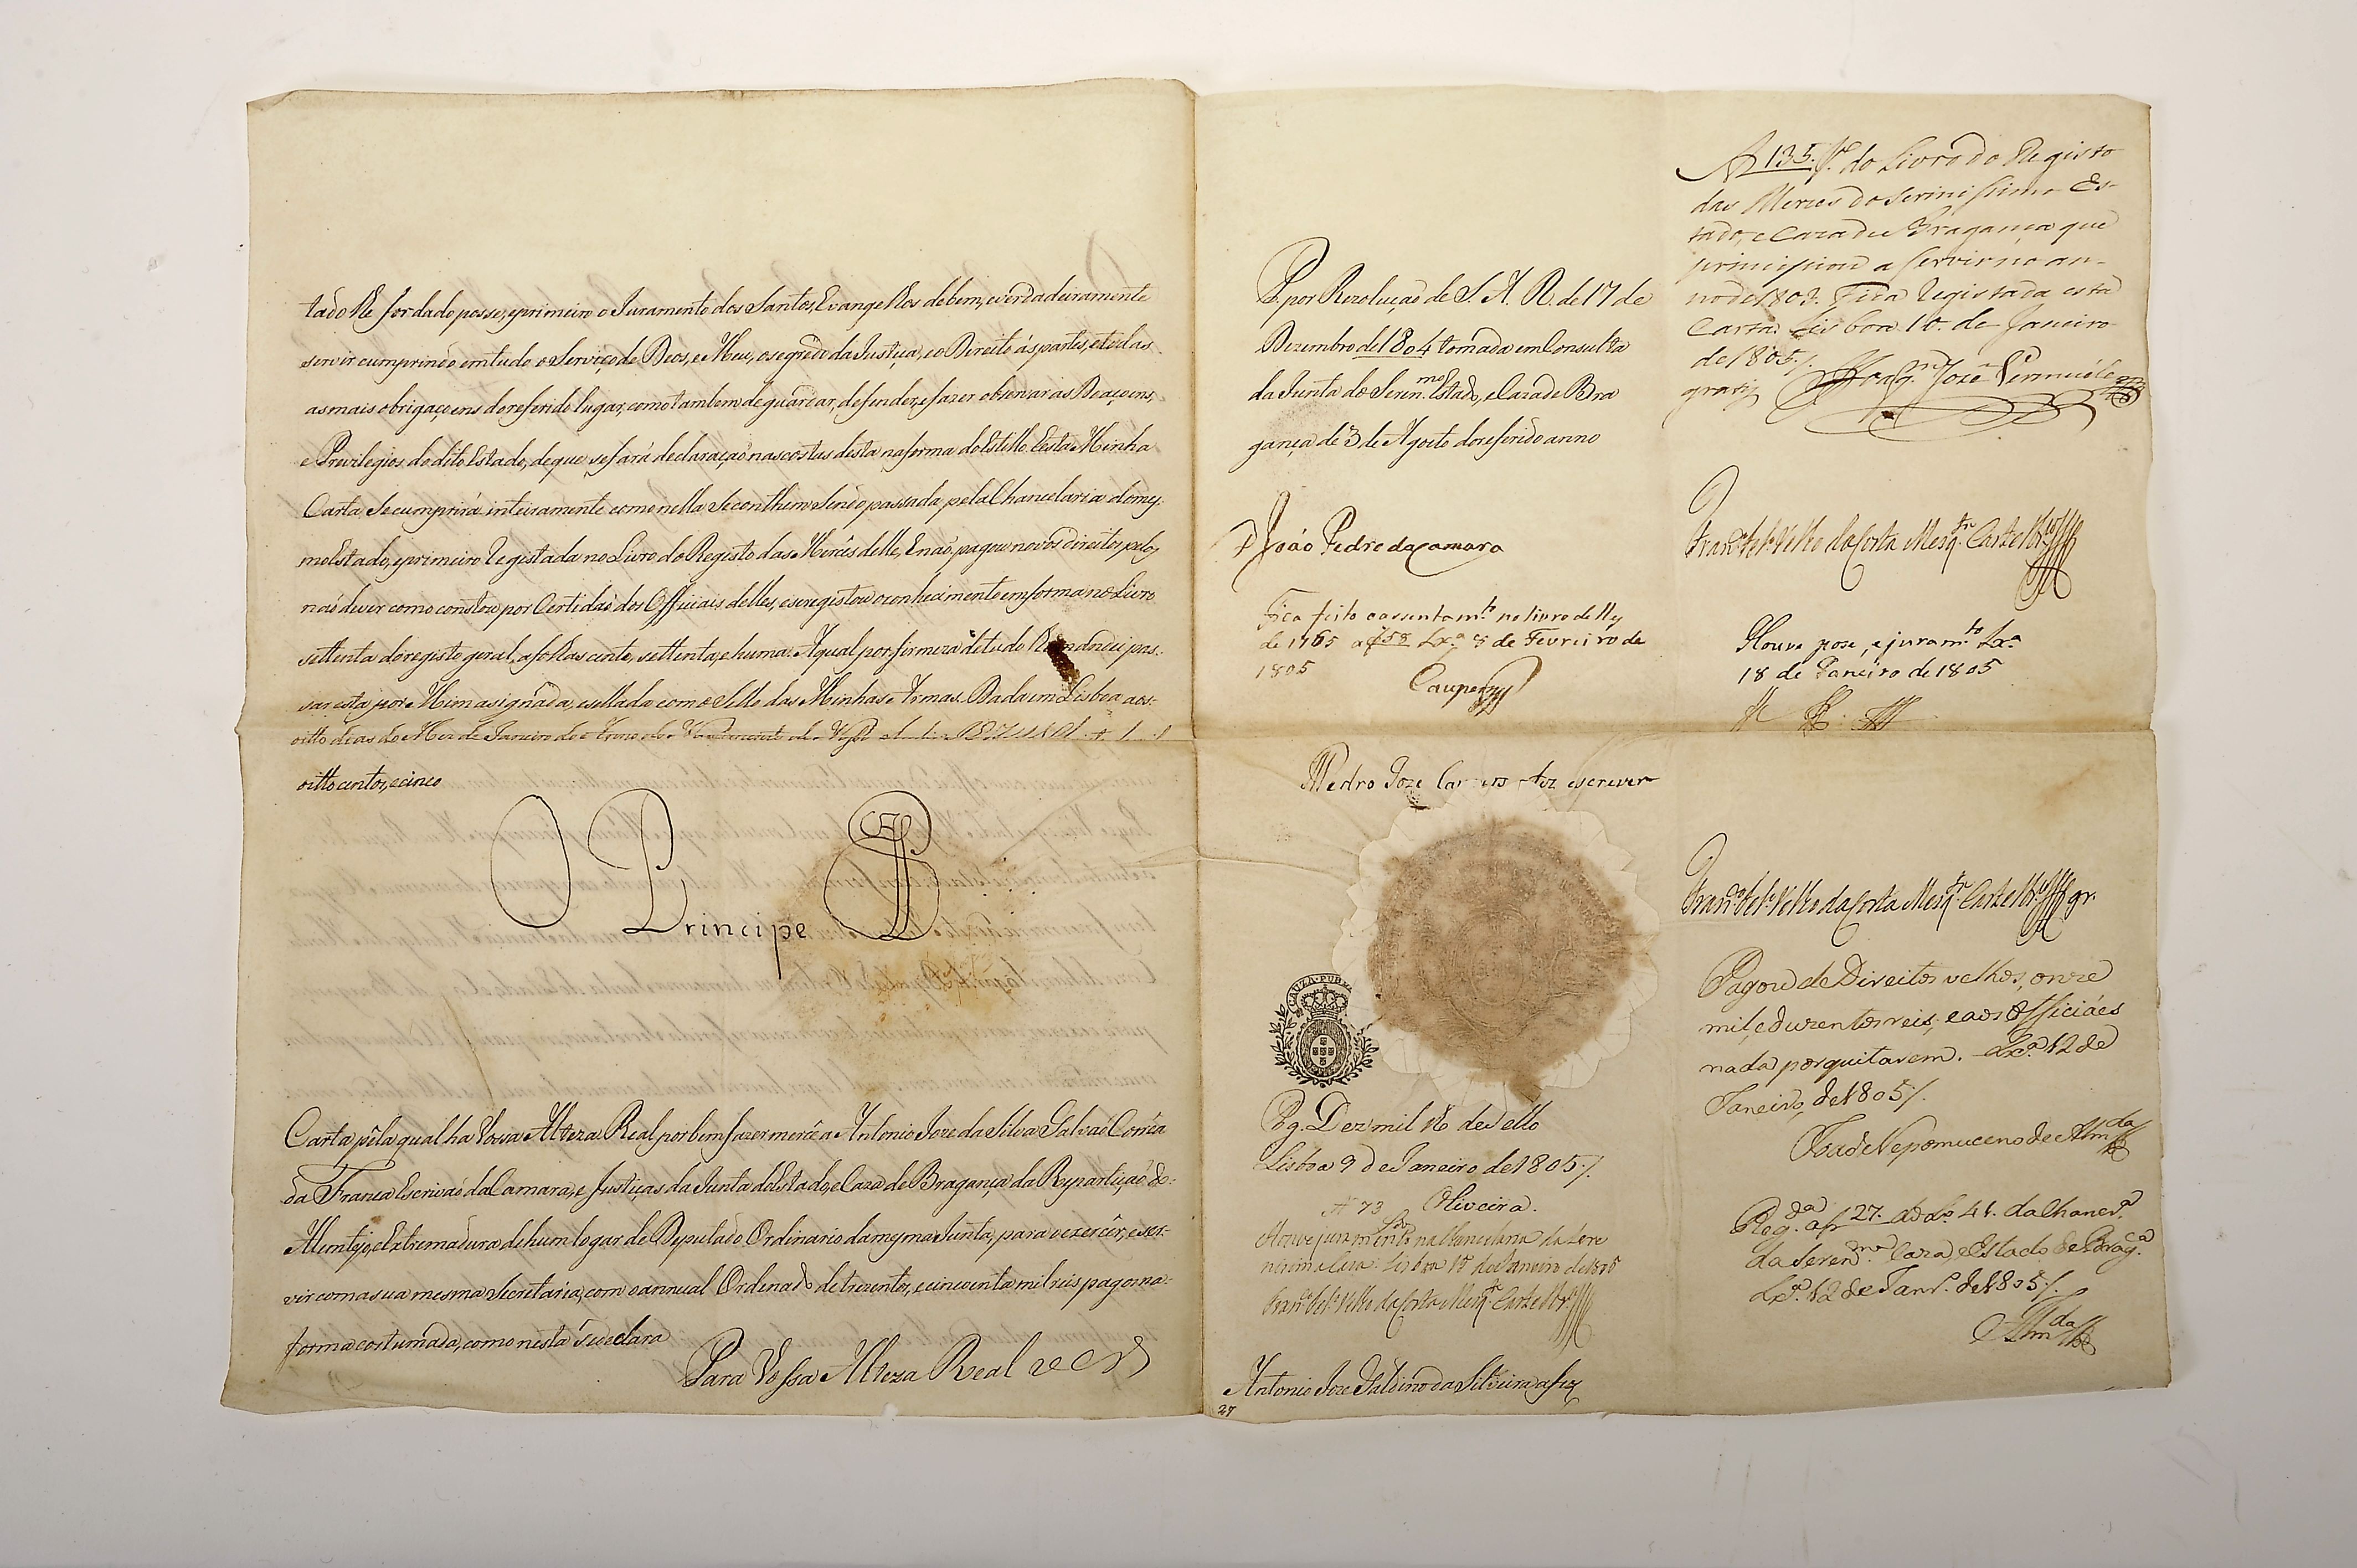 tado lhe for dado posse, e primeiro o Juramento dos Santos Evangelhos de bem, e verdadeiramente
servir cumprindo em tudo o Serviço de Deos, e Meu, o segredo da Justiça, e o Direito ás partes, e todas
as mais obrigaçoens do referido lugar, como tambem de guardar, defender, e fazer observar as Doaçoens,
e Previlegios do dito Estado, de que se fará declaração nas costas desta na forma do Estillo. E esta Minha
Carta se cumprirá inteiramente como nella se conthem sendo passada pela Chancelaria do mes-
mo Estado, e primeiro registada no Livro do Registo das Mercês delle, E não pagou novos Direitos pelos
não dever como constou por Certidão dos Officiais delles, e se registou o conhecimento em forma no Livro
settenta do registo geral, a folhas cento, settenta, e huma. A qual por firmeza de tudo lhe mandei pas-
sar esta por Mim asignada, e sellada com o Sello das Minhas Armas. Dada em Lisboa aos
oitto dias do Mez de Janeiro do Anno do Nascimento de
oitto centos, e cinco
O Principe
Carta pela qual ha Vossa Alteza Real por bem fazer mercê a Antonio Joze da Silva Galvaõ Corrêa
da Franca Escrivaõ da Camara, e Justiças da Junta do Estado, e Caza de Bragança da Repartiçaõ do
Alemtejo, e Extremadura de hum logar de Deputado Ordinario da mesma Junta, para o exercêr, e ser-
vir com a sua mesma Secretaria, com o annual Ordenado de trezentos, e cincoenta mil reis pagos na
forma costumada, como nesta se declara
Para Vossa Alteza Real ver
P. por Rezolução de S. A. R. de 17 de
Dezembro de 1804 tomada em Consulta
da Junta do Seren.mo Estado, e Caza de Bra
gança de 3 de Agosto do referido anno
D João Pedro da Camara
Fica feito o assentam.to no livro delles
de 1765 a f 58 Lx.a 8 de Fevreiro de
1805
Caupers
Pedro Joze fez escrever
CAUZA PUB
Pg. Dez mil rs de Sello
Lisboa 9 de Janeiro de 1805 /.
N 73 Oliveira.
Houve juramento na Chancelaria da Sere
nissima Caza. Lisboa de Janeiro de 1805
Fran.co Fel. Velho da Costa Mesq.ta Castello Br.co
Antonio Joze Galdino da Silveira a fez
27
A 135 do Livro do Registo
das Merces do Serinissimo Es-
tado, e Caza de Bragança que
principiou a servir no an-
no de 1803. Fica registada esta
Carta. Lisboa 10. de Janeiro
de 1805 /.
gratis Joaq.m Joze Vermuele
Fran.co Fel. Velho da Costa Mesq.ta Castello Br.co
Houve pose, e juram.to Lx.a
18 de Janeiro de 1805
Fran.co Fel. Velho da Costa Mesq.ta Castello Br.co gr.
Pagou de Direitos velhos, onze
mil, e duzentos reis; e aos Officiáes
nada por quitarem. Lx.a 12 de
Janeiro, de 1805 /.
João Nepomuceno de Alm.da
Reg.da a f 27. do L.o 41. da Chanc.a
da Seren.ma Caza, e Estado de Brag.ca
Lx.a 12 de Jan.ro de 1805 /.
Alm.da